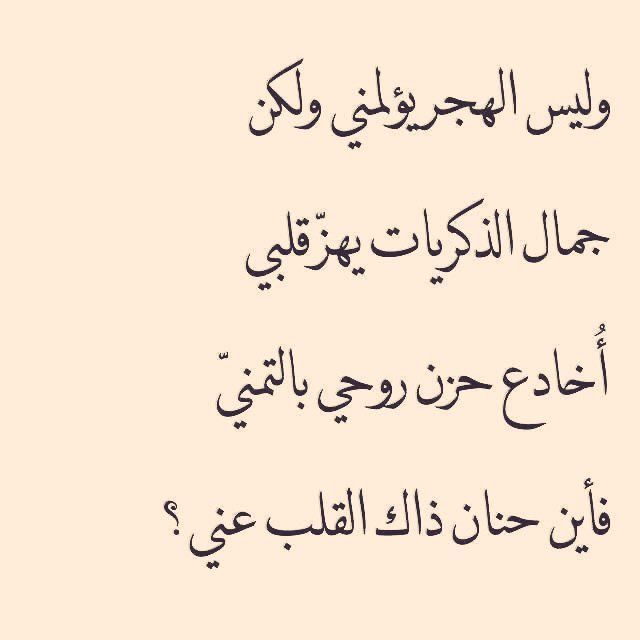 وليس الهجر يؤلمني ولكن
جمال الذكريات يهزّ قلبي
أُخادع حزن روحي بالتمنيّ
فأين حنان ذاك القلب عني ؟